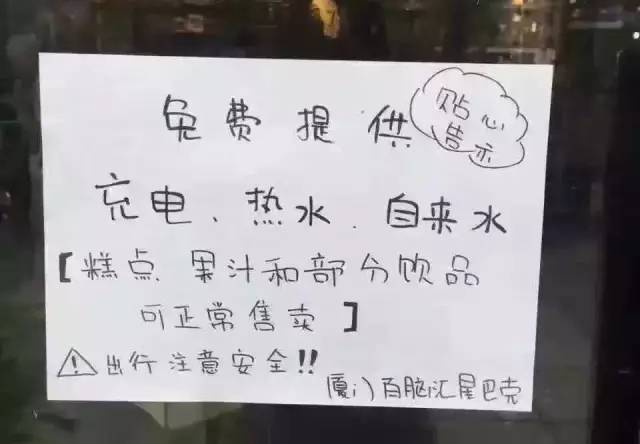 贴心
告示
免费提供
充电、热水、自来水
【糕点 果汁和部分饮品
可正常售卖】
⚠出行注意安全!!
厦门百脑汇星巴克